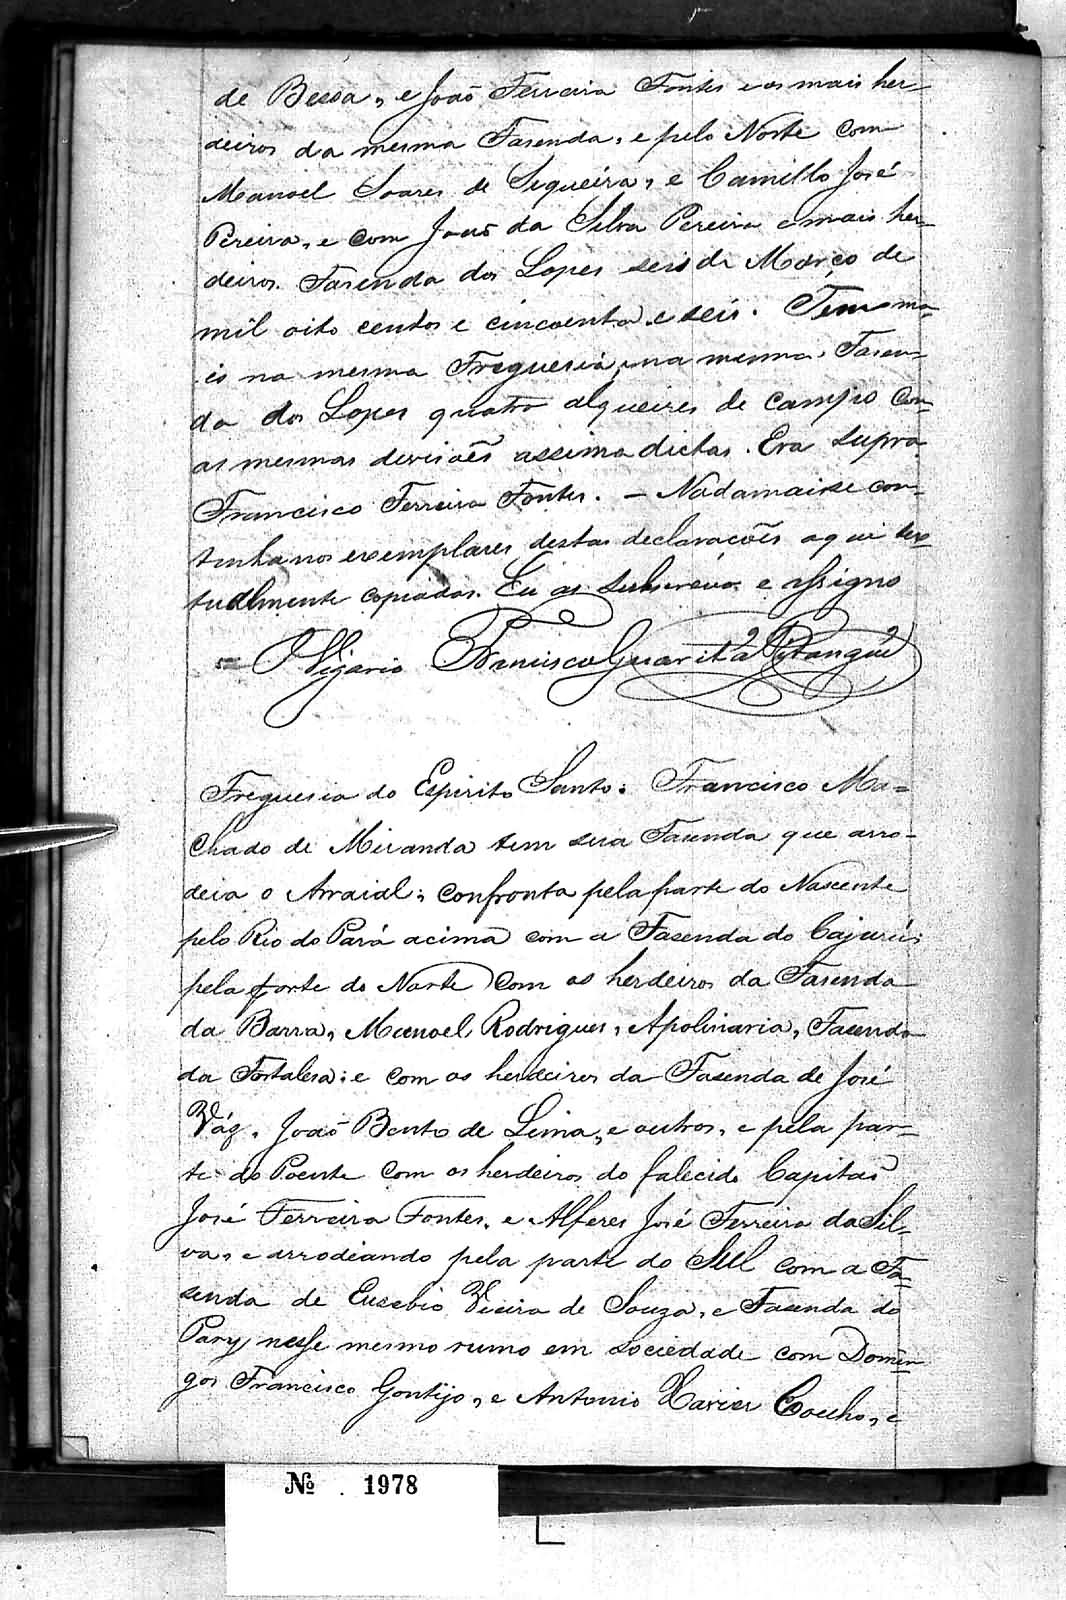 de Bessa, e João Ferreira Fontes e os mais her-
deiros da mesma Fasenda, e pelo Norte com
Manoel Soares de Siqueira, e Camillo José
Pereira, e com João da Silva Pereira e mais her-
deiros. Fasenda dos Lopes seis de Março de
mil oito centos e cincoenta e seis. Tem ma-
is na mesma Freguesia, na mesma Fasen-
da dos Lopes quatro alqueires de campo com
as mesmas devisões assima dictas. Era supra.
Francisco Ferreira Fontes. — Nada mais se con-
tinha nos exemplares destas declarações aqui tex-
tualmente copiadas. Eu as subscrevo e assigno
= O Vigario Francisco Guarita Pitangui
Freguesia do Espirito Santo: Francisco Ma=
chado de Miranda tem sua Fasenda que arro-
deia o Arraial; confronta pela parte do Nascente
pelo Rio do Pará acima com a Fasenda do Cajurú;
pela parte do Norte com os herdeiros da Fasenda
da Barra, Manoel Rodrigues, Apolinaria, Fasenda
da Fortalesa; e com os herdeiros da Fasenda de José
Váz, João Bento de Lima, e outros, e pela par-
te do Poente com os herdeiros do falecido Capitão
José Ferreira Fontes, e Alferes José Ferreira da Sil-
va, e arrodiando pela parte do Sul com a Fa-
senda de Eusebio Vieira de Souza, e Fasenda do
Pary nesse mesmo rumo em sociedade com Domin-
gos Francisco Gontijo, e Antonio Xavier Coelho, e
Nº . 1978